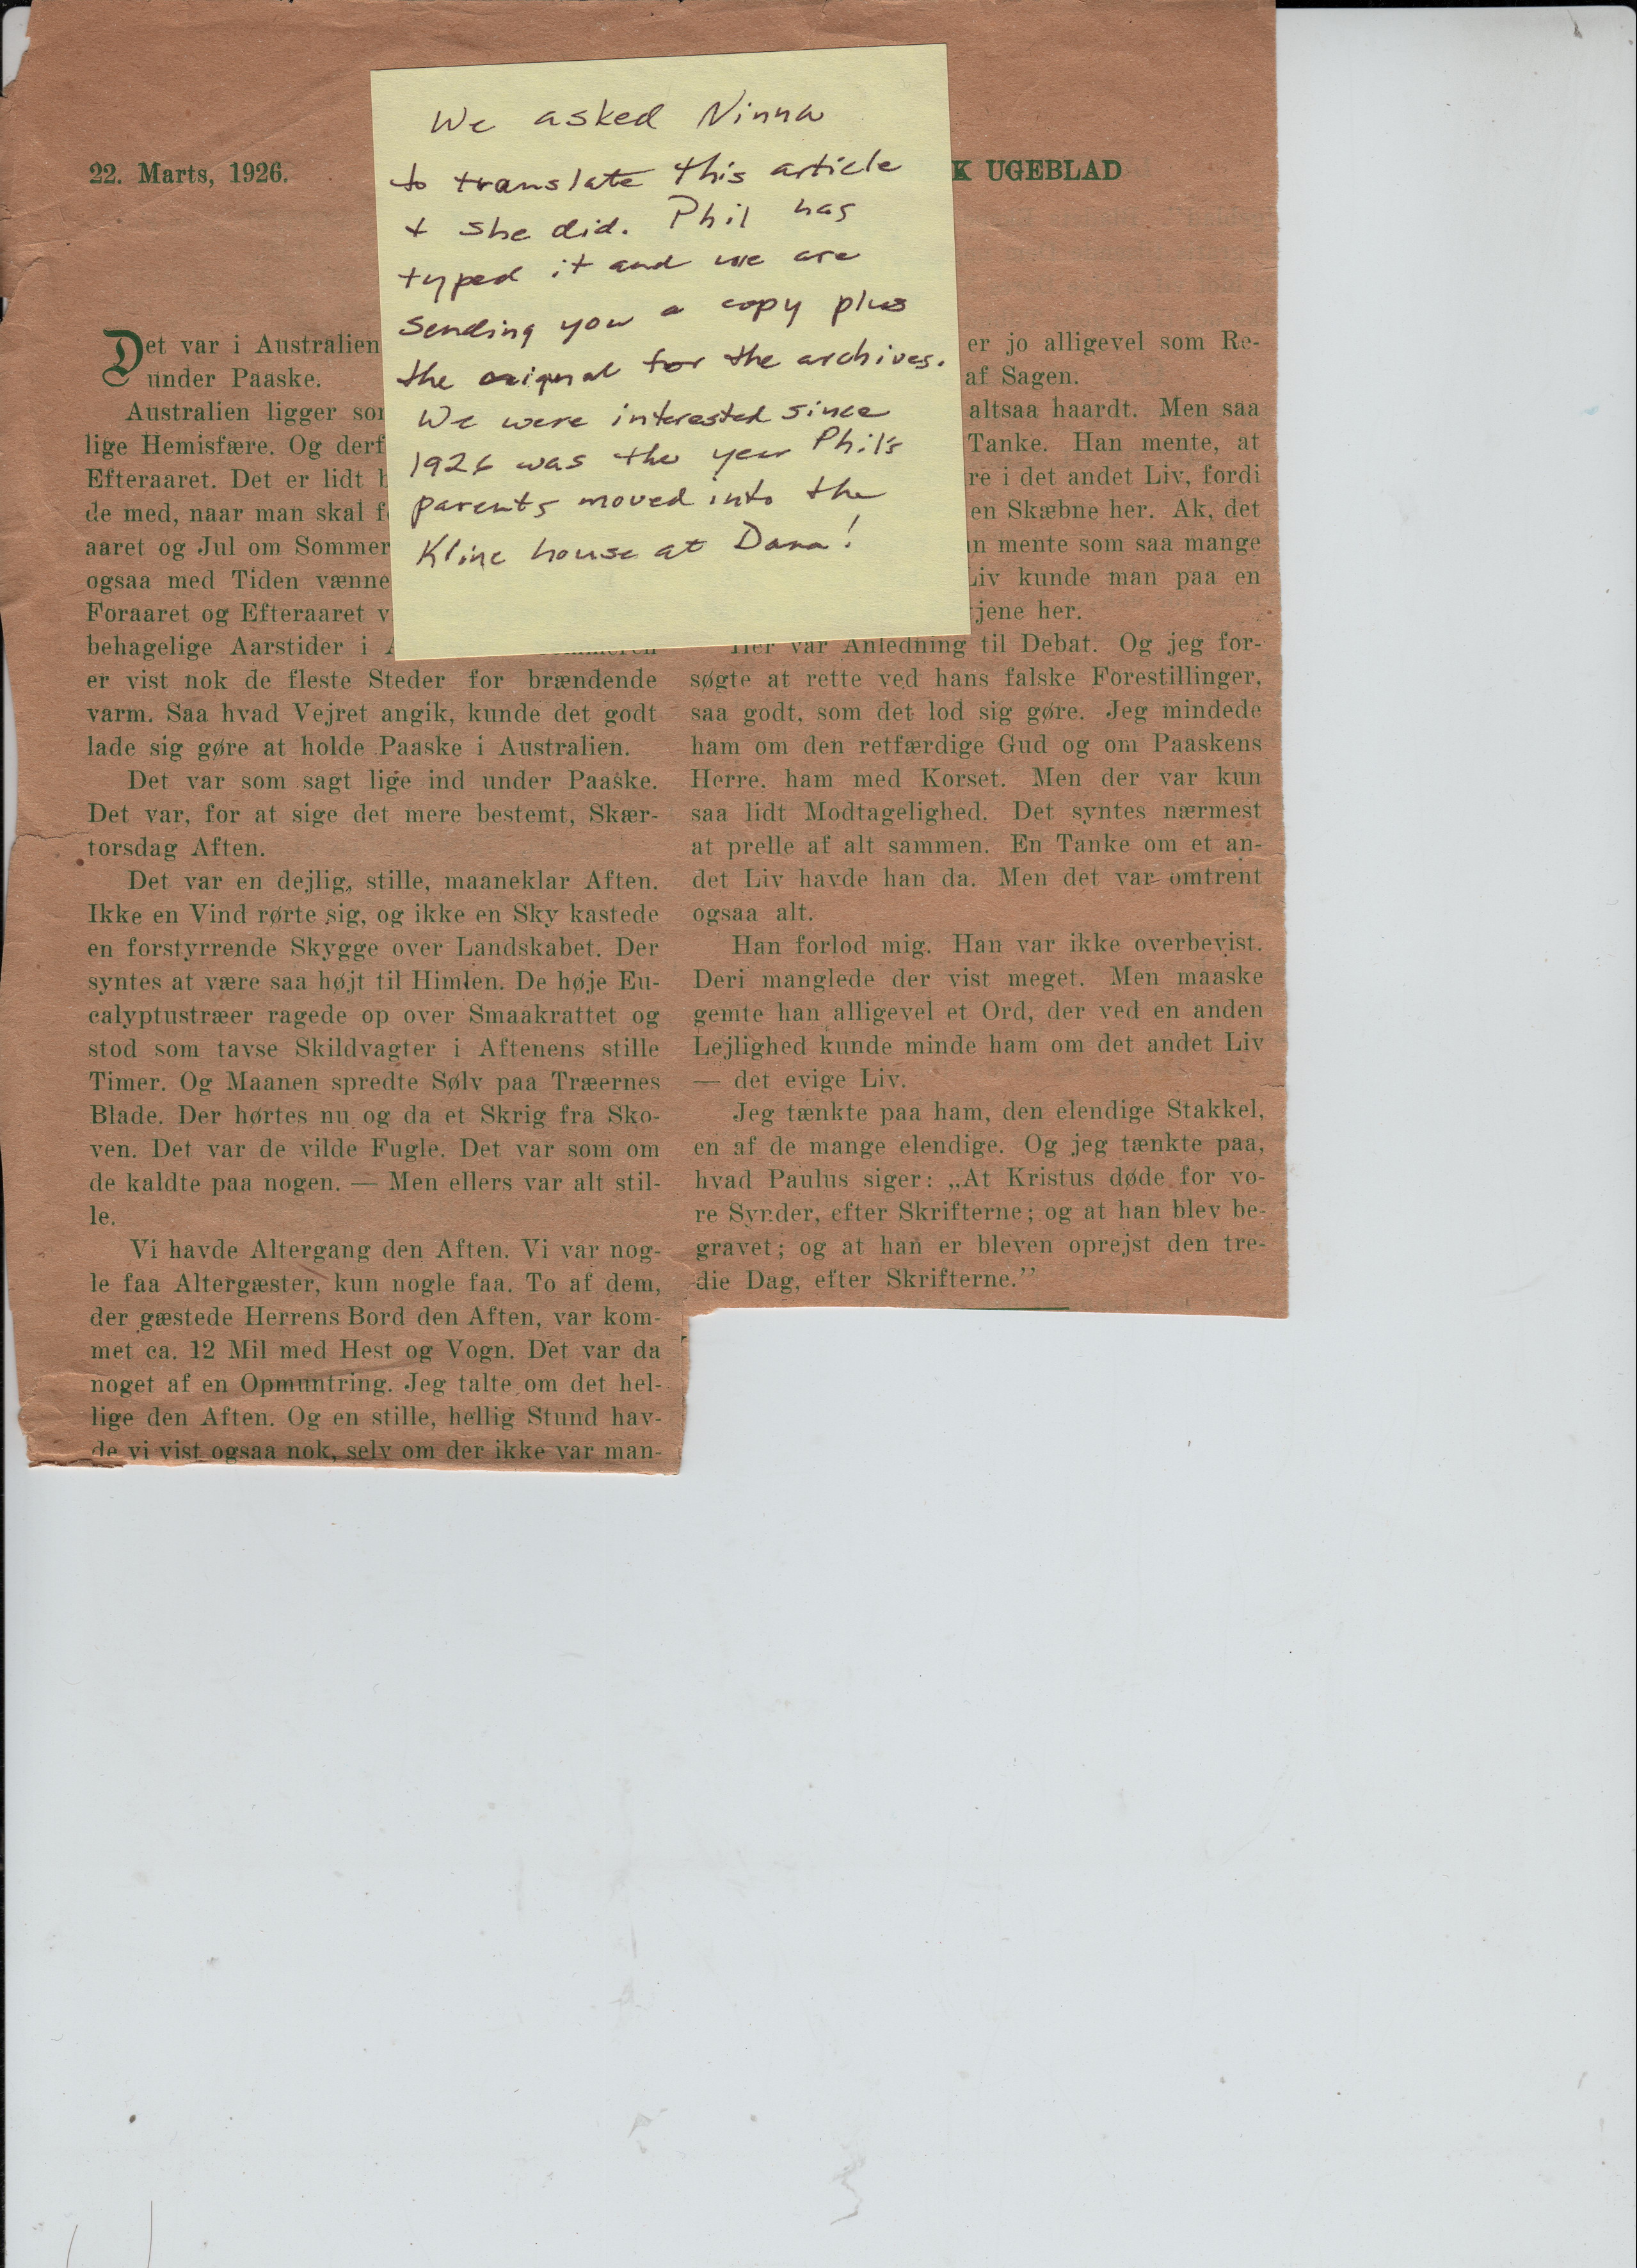 We asked Ninna
to translate this article
+ she did. Phil has
typed it and we are
sending you a copy plus
the original for the archives.
We were interested since
1926 was the year Phil's
parents moved into the
Kline house at Dana!
22. Marts, 1926.
K UGEBLAD
Det var i Australien
under Paaske.
Australien ligger som
lige Hemisfære. Og derf
Efteraaret. Det er lidt
de med, naar man skal f
aaret og Jul om Sommer
ogsaa med Tiden vænne
Foraaret og Efteraaret v
behagelige Aarstider i A
er vist nok de fleste Steder for brændende
varm. Saa hvad Vejret angik, kunde det godt
lade sig gøre at holde Paaske i Australien.
Det var som sagt lige ind under Paaske.
Det var, for at sige det mere bestemt, Skær-
torsdag Aften.
Det var en dejlig, stille, maaneklar Aften.
Ikke en Vind rørte sig, og ikke en Sky kastede
en forstyrrende Skygge over Landskabet. Der
syntes at være saa højt til Himlen. De høje Eu-
calyptustræer ragede op over Smaakrattet og
stod som tavse Skildvagter i Aftenens stille
Timer. Og Maanen spredte Sølv paa Træernes
Blade. Der hørtes nu og da et Skrig fra Sko-
ven. Det var de vilde Fugle. Det var som om
de kaldte paa nogen. — Men ellers var alt stil-
le.
Vi havde Altergang den Aften. Vi var nog-
le faa Altergæster, kun nogle faa. To af dem,
der gæstede Herrens Bord den Aften, var kom-
met ca. 12 Mil med Hest og Vogn. Det var da
noget af en Opmuntring. Jeg talte om det hel-
lige den Aften. Og en stille, hellig Stund hav-
de vi vist ogsaa nok, selv om der ikke var man-
er jo alligevel som Re-
af Sagen.
altsaa haardt. Men saa
Tanke. Han mente, at
re i det andet Liv, fordi
en Skæbne her. Ak, det
n mente som saa mange
Liv kunde man paa en
jene her.
Her var Anledning til Debat. Og jeg for-
søgte at rette ved hans falske Forestillinger,
saa godt, som det lod sig gøre. Jeg mindede
ham om den retfærdige Gud og om Paaskens
Herre, ham med Korset. Men der var kun
saa lidt Modtagelighed. Det syntes nærmest
at prelle af alt sammen. En Tanke om et an-
det Liv havde han da. Men det var omtrent
ogsaa alt.
Han forlod mig. Han var ikke overbevist.
Deri manglede der vist meget. Men maaske
gemte han alligevel et Ord, der ved en anden
Lejlighed kunde minde ham om det andet Liv
— det evige Liv.
Jeg tænkte paa ham, den elendige Stakkel,
en af de mange elendige. Og jeg tænkte paa,
hvad Paulus siger: „At Kristus døde for vo-
re Synder, efter Skrifterne; og at han blev be-
gravet; og at han er bleven oprejst den tre-
die Dag, efter Skrifterne.”